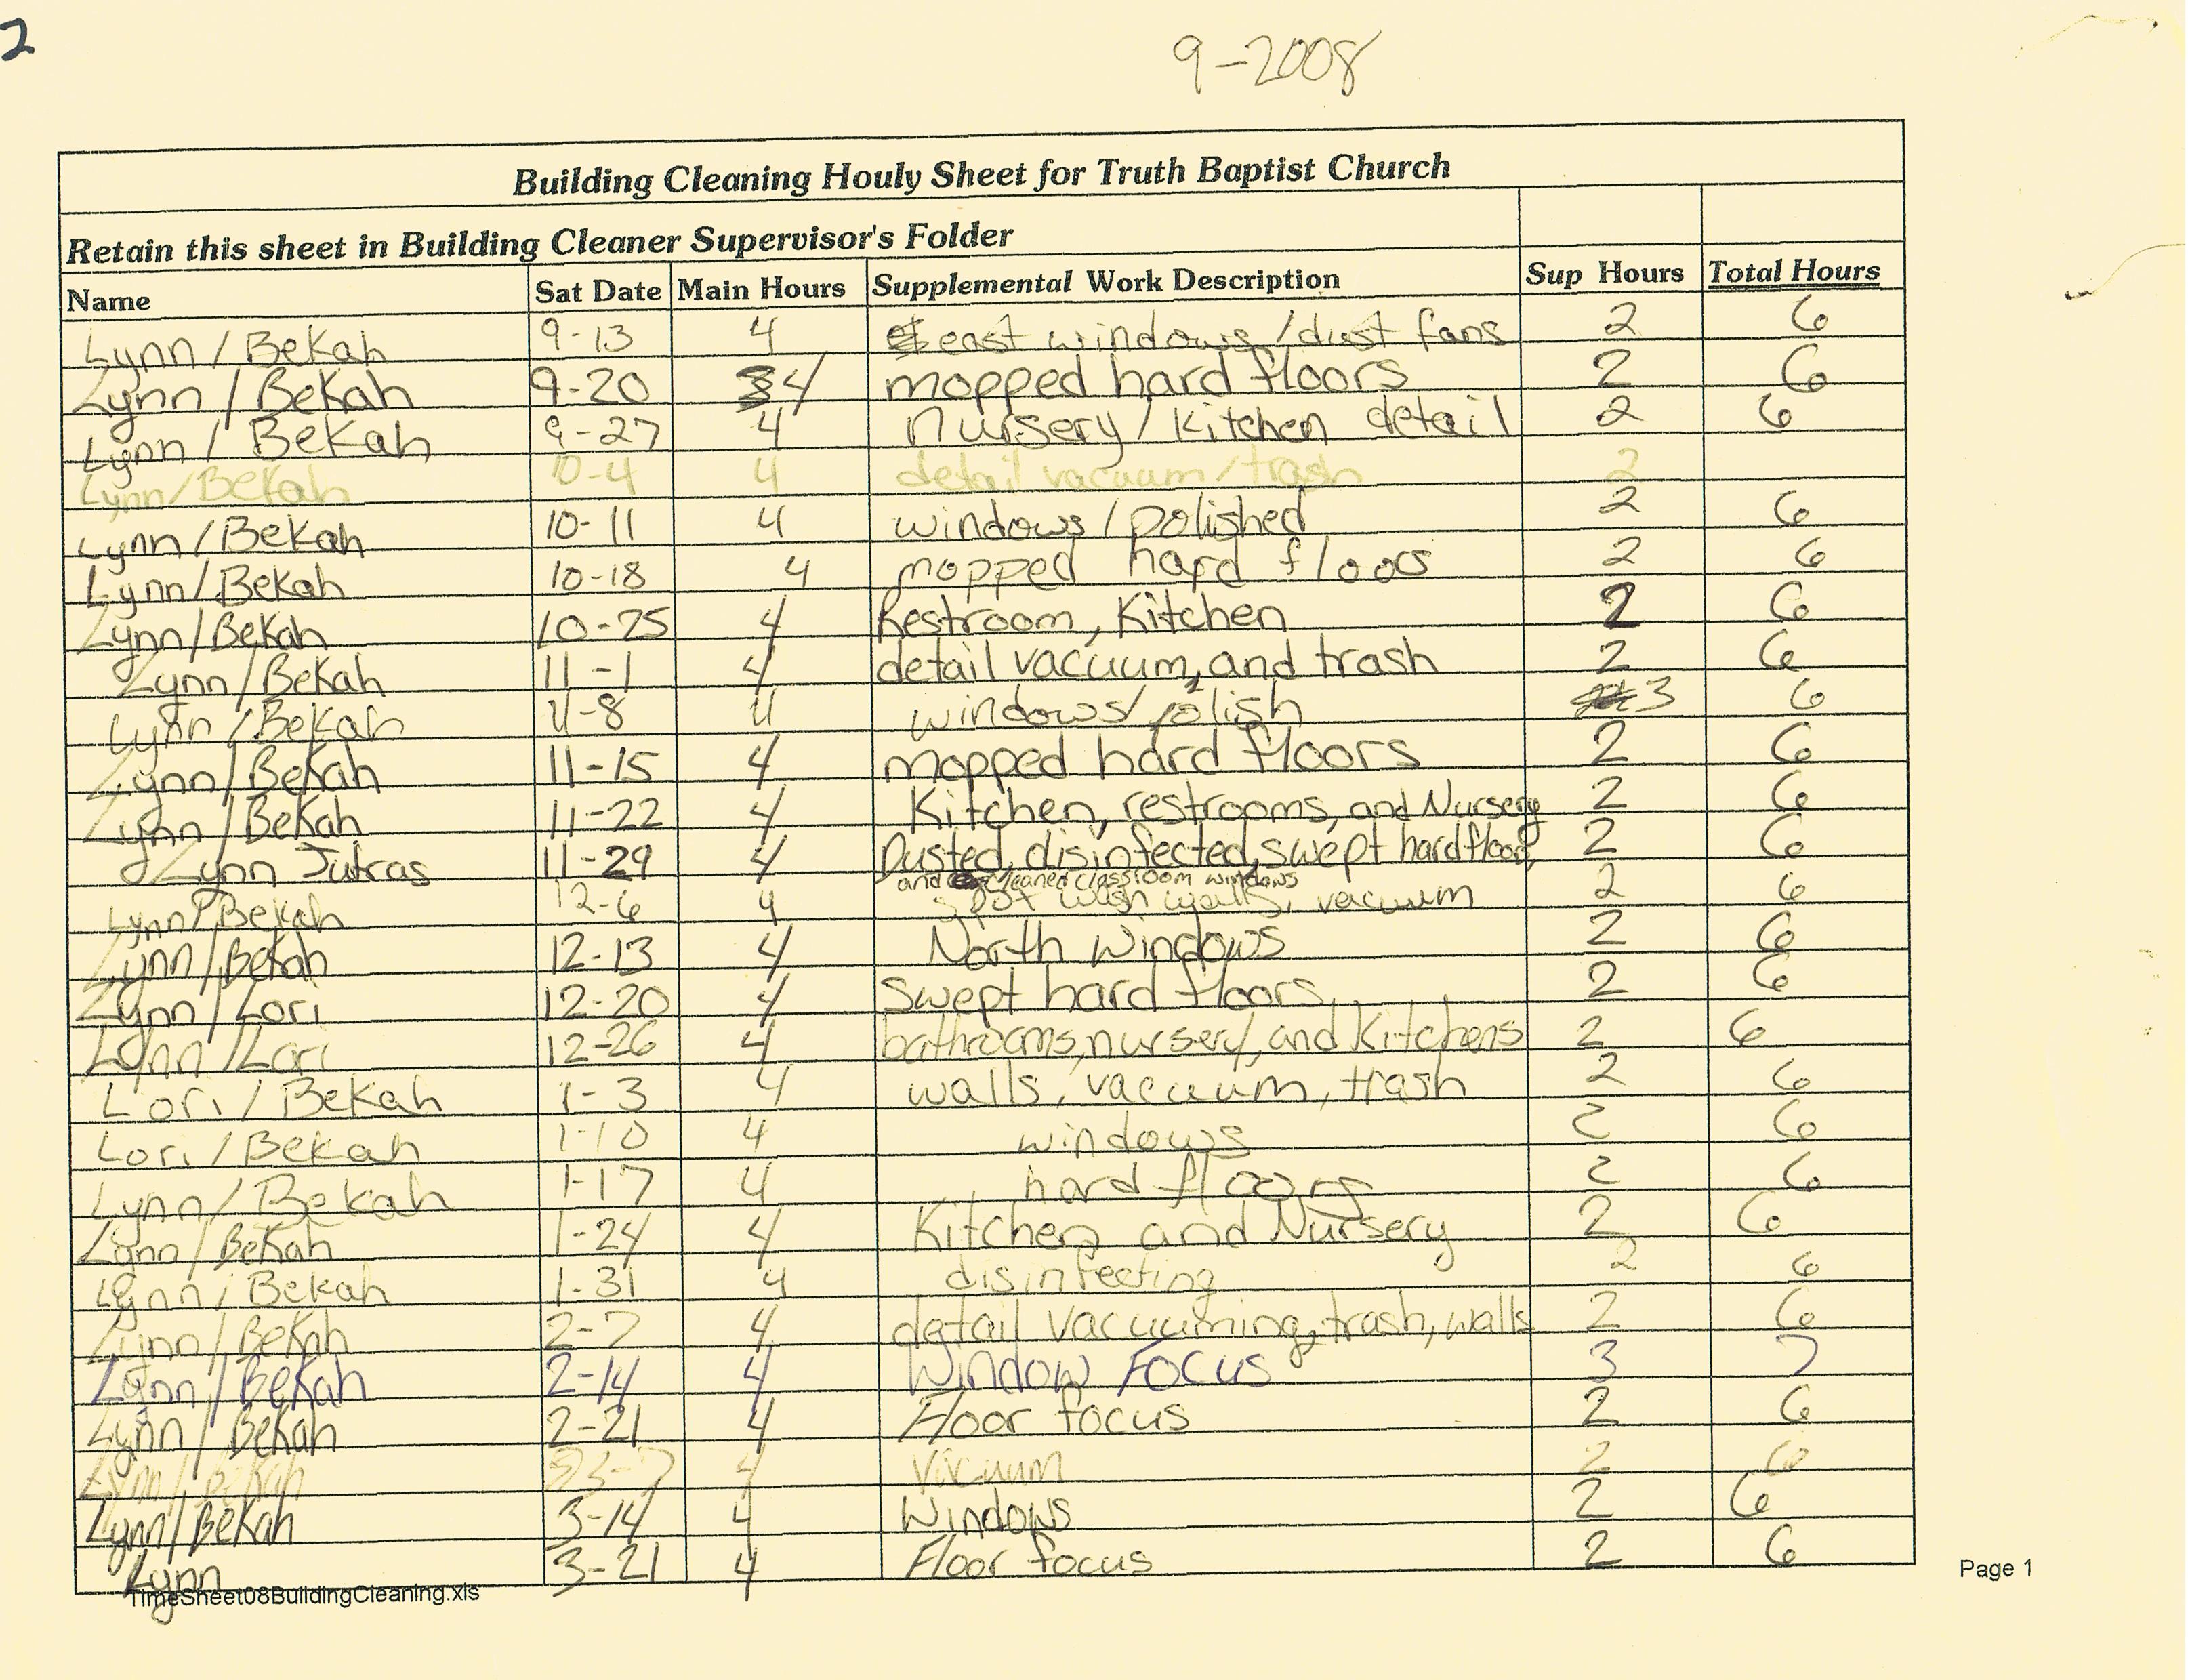 2
9-2008
Building Cleaning Houly Sheet for Truth Baptist Church
Retain this sheet in Building Cleaner Supervisor's Folder
Name Sat Date Main Hours Supplemental Work Description Sup Hours Total Hours
Lynn / Bekah 9-13 4 east windows / dust fans 2 6
Lynn / Bekah 9-20 4 mopped hard floors 2 6
Lynn / Bekah 9-27 4 Nursery / Kitchen detail 2 6
Lynn/Bekah 10-4 4 detail vacuum/trash 2
Lynn / Bekah 10-11 4 windows / polished 2 6
Lynn/Bekah 10-18 4 mopped hard floors 2 6
Lynn/Bekah 10-25 4 Restroom, Kitchen 2 6
Lynn/Bekah 11-1 4 detail vacuum, and trash 2 6
Lynn / Bekah 11-8 4 windows/polish 3 6
Lynn/Bekah 11-15 4 mopped hard floors 2 6
Lynn/Bekah 11-22 4 Kitchen, restrooms, and Nursery 2 6
Lynn Jutras 11-29 4 Dusted, disinfected, swept hard floors, 2 6
and cleaned classroom windows
Lynn Bekah 12-6 4 spot wash walls, vacuum 2 6
Lynn/Bekah 12-13 4 North Windows 2 6
Lynn/Lori 12-20 4 Swept hard floors 2 6
Lynn/Lori 12-26 4 bathrooms, nursery, and Kitchens 2 6
Lori / Bekah 1-3 4 walls, vacuum, trash 2 6
Lori / Bekah 1-10 4 windows 2 6
Lynn / Bekah 1-17 4 hard floors 2 6
Lynn/Bekah 1-24 4 Kitchen and Nursery 2 6
Lynn / Bekah 1-31 4 disinfecting 2 6
Lynn/Bekah 2-7 4 detail vacuuming, trash, walls 2 6
Lynn/Bekah 2-14 4 Window Focus 3 7
Lynn/Bekah 2-21 4 Floor focus 2 6
Lynn/Bekah 3-7 4 Vacuum 2 6
Lynn/Bekah 3-14 4 Windows 2 6
Lynn 3-21 4 Floor focus 2 6
TimeSheet08BuildingCleaning.xls
Page 1